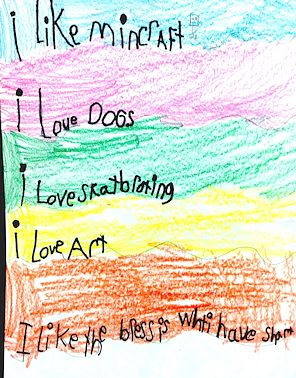 i like mincraft
i Love DOGS
i Love skatbrating
i Love Art
I like the bless is whti have short